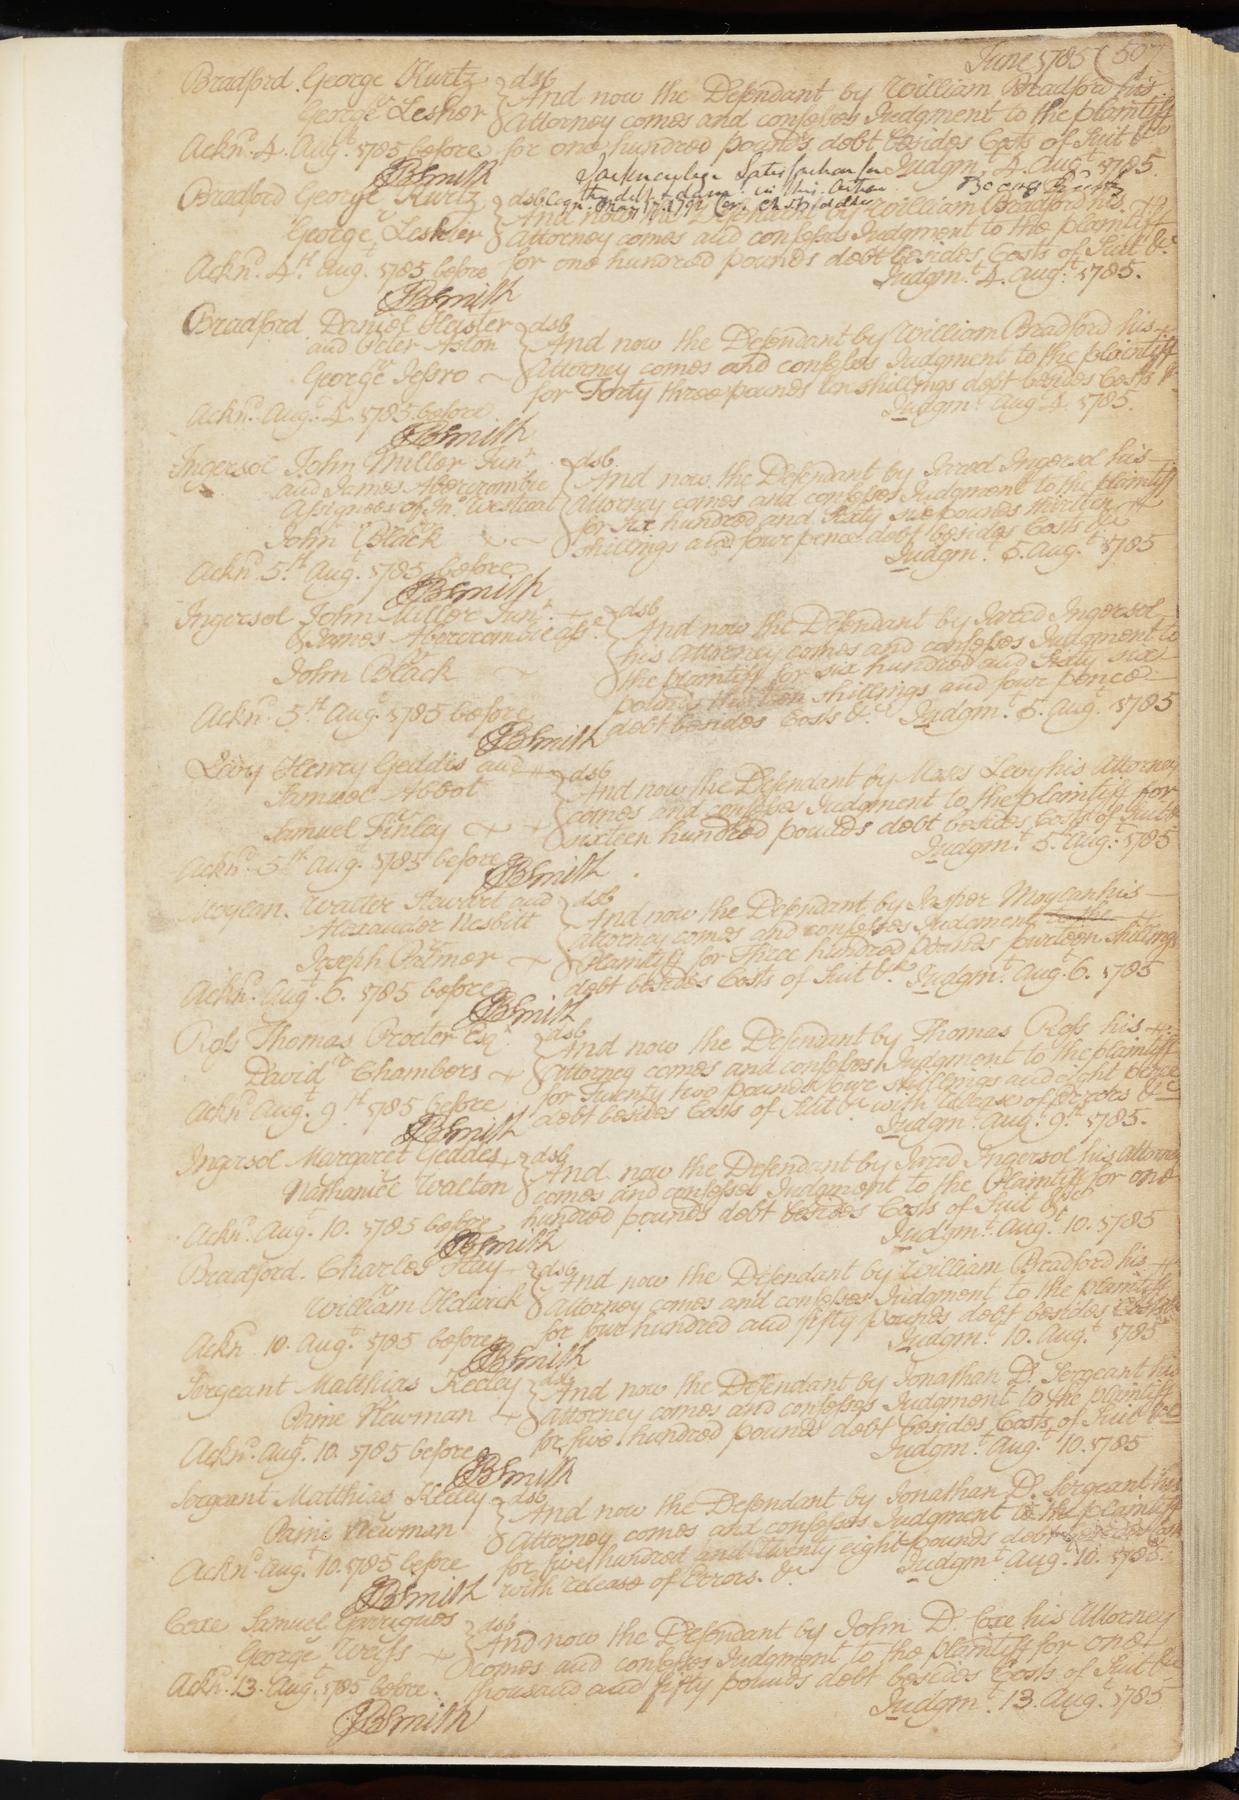 June 1785 (507
Bradford. George Kurtz } dsb
And now the Defendant by William Bradford his
vr
George Lesher
Attorney comes and confesses Judgment to the plaintiff
for one hundred pounds debt besides Costs of Suit &c
Ackn.d 4. Aug.t 1785 before
Judgm.t 4. Aug.t 1785.
JBSmith
I acknowledge Satisfaction for
the debt & dam. in this Action
Bradford George Kurtz } dsb
And now the Defendant by William Bradford his
vr
George Lesher
Attorney comes and confesses Judgment to the plaintiff
for one hundred pounds debt besides Costs of Suit &c
Ackn.d 4.th Aug.t 1785 before
Judgm.t 4. Aug.t 1785.
JBSmith
Bradford Daniel Heister } dsb
and Peter Aston
And now the Defendant by William Bradford his
vr
George Jessro
Attorney comes and confesses Judgment to the plaintiff
for Forty three pounds ten shillings debt besides Costs &c
Ackn.d Aug.t 4. 1785 before
Judgm.t Aug.t 4. 1785.
JBSmith
Ingersol John Miller Jun.r } dsb
and James Abercrombie
And now the Defendant by Jared Ingersol his
Assignees of Jn.o Westcoat
Attorney comes and confesses Judgment to the plaintiff
vr
John Black
for six hundred and sixty six pounds thirteen
shillings and four pence debt besides Costs &c
Ackn.d 5.th Aug.t 1785 before
Judgm.t 5. Aug.t 1785
JBSmith
Ingersol John Miller Jun.r } dsb
& James Abercrombie ass.s
And now the Defendant by Jared Ingersol
vr
his Attorney comes and confesses Judgment to
John Black
the plaintiff for six hundred and sixty six
pounds thirteen shillings and four pence
Ackn.d 5.th Aug.t 1785 before
debt besides Costs &c Judgm.t 5. Aug.t 1785
JBSmith
Levy Henry Geddis and } dsb
Samuel Abbot
And now the Defendant by Moses Levy his Attorney
vr
comes and confesses Judgment to the plaintiff for
Samuel Finley
sixteen hundred pounds debt besides Costs of Suit &c
Ackn.d 5.th Aug.t 1785 before
Judgm.t 5. Aug.t 1785
JBSmith
Moylan. Walter Howbet and } dsb
Alexander Nesbitt
And now the Defendant by Jasper Moylan his
vr
Attorney comes and confesses Judgment to the
Joseph Palmer
Plaintiff for Three hundred pounds fourteen shillings
Ackn.d Aug.t 6. 1785 before
debt besides Costs of Suit &c. Judgm.t Aug.t 6. 1785
JBSmith
Ross Thomas Procter Esq.r } dsb
And now the Defendant by Thomas Ross his
vr
David Chambers
Attorney comes and confesses Judgment to the plaintiff
for Twenty two pounds four shillings and eight pence
Ackn.d Aug.t 9.th 1785 before
debt besides Costs of Suit &c with release of Errors &c
JBSmith
Judgm.t Aug.t 9.th 1785.
Ingersol Margaret Geddes } dsb
And now the Defendant by Jared Ingersol his attorney
vr
Nathaniel Walton
comes and confesses Judgment to the Plaintiff for one
hundred pounds debt besides Costs of Suit &c
Ackn.d Aug.t 10. 1785 before
Judgm.t Aug.t 10. 1785
JBSmith
Bradford. Charles Hay } dsb
And now the Defendant by William Bradford his
vr
William Oldwick
Attorney comes and confesses Judgment to the plaintiff
for four hundred and fifty pounds debt besides Costs &c
Ackn.d 10. Aug.t 1785 before
Judgm.t 10. Aug.t 1785
JBSmith
Sergeant Matthias Keeley } dsb
And now the Defendant by Jonathan D. Sergeant his
vr
Paine Newman
Attorney comes and confesses Judgment to the plaintiff
for five hundred pounds debt besides Costs of Suit &c
Ackn.d Aug.t 10. 1785 before
Judgm.t Aug.t 10. 1785
JBSmith
Sergeant Matthias Keeley } dsb
And now the Defendant by Jonathan D. Sergeant his
vr
Paine Newman
Attorney comes and confesses Judgment to the plaintiff
for five hundred and twenty eight pounds debt besides Costs
Ackn.d Aug.t 10. 1785 before
with release of Errors. &c Judgm.t Aug.t 10. 1785.
JBSmith
Coxe Samuel Garrigues } dsb
vr
And now the Defendant by John D. Coxe his Attorney
George Weiss
comes and confesses Judgment to the plaintiff for one
thousand and fifty pounds debt besides Costs of Suit &c
Ackn.d 13. Aug.t 1785 before.
Judgm.t 13. Aug.t 1785
JBSmith